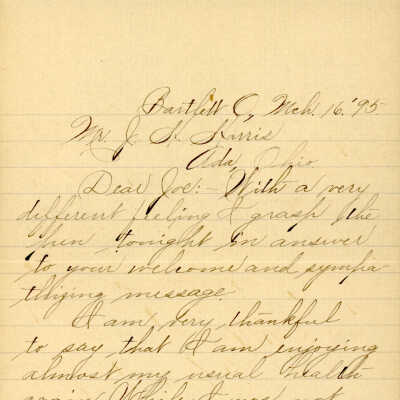 Bartlett O, Mch. 16. '95
Mr. J. S. Harris
Ada, Ohio.
Dear Joe:- With a very
different feeling I grasp the
pen tonight in answer
to your welcome and sympa
thizing message.
I am very thankful
to say that I am enjoying
almost my usual health
again. While I was not